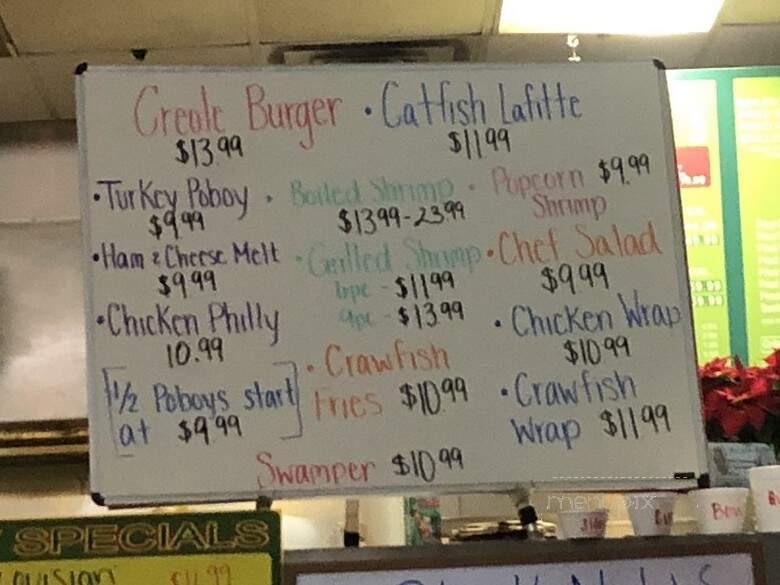 Creole Burger • Catfish Lafitte
$13.99 $11.99
• Turkey Poboy • Boiled Shrimp • Popcorn $9.99
$9.99 $13.99-23.99 Shrimp
• Ham & Cheese Melt • Grilled Shrimp • Chef Salad
$9.99 6pc - $11.99 $9.99
9pc - $13.99
• Chicken Philly • Chicken Wrap
10.99 $10.99
• Crawfish
Fries $10.99
[1/2 Poboys start
at $9.99]
• Crawfish
Wrap $11.99
Swamper $10.99
SPECIALS
$11.99